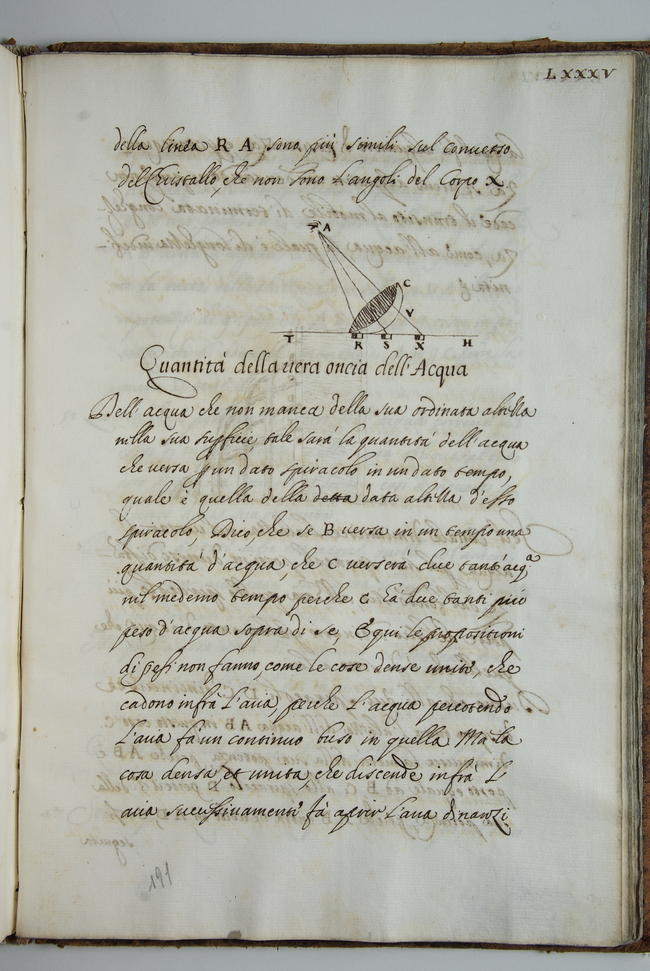 LXXXV
della linea R A, sono più simili sul convesso
del Christallo, che non sono l'angoli del Corpo X.
A
C
V
T R S X H
Quantità della vera oncia dell'Acqua
Dell'acqua che non manca della sua ordinata altezza
nella sua superficie, tale sarà la quantità dell'acqua
che versa p un dato spiracolo in un dato tempo,
quale è quella della detta data altezza d'esso
spiracolo. Dico che se B versa in un tempo una
quantità d'acqua, che C verserà due tant'acqa
nel medemo tempo perche C hà due tanti più
peso d'acqua sopra di se, & qui le propositioni
di pesi non fanno, come le cose dense unite, che
cadono infrà l'aria, perche l'acqua percotendo
l'aria fà un continuo buso in quella Ma la
cosa densa, et unita, che discende infrà l'
aria successivamente fà aprir l'aria dinanzi
191